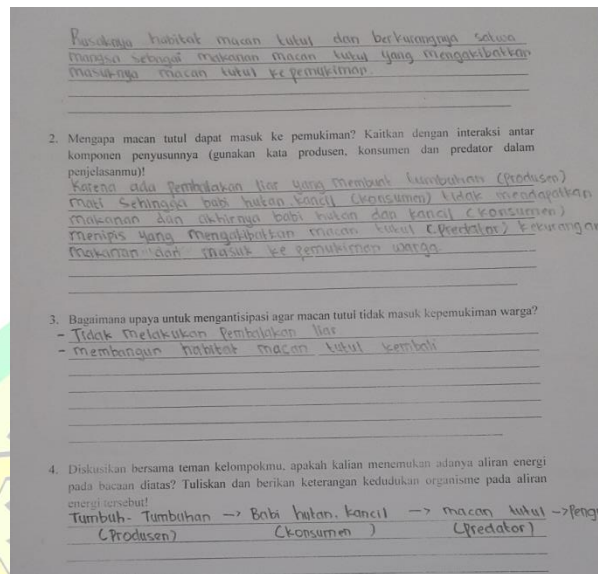 Rusaknya habitat macan tutul dan berkurangnya satwa
mangsa sebagai makanan macan tutul yang mengakibatkan
masuknya macan tutul ke pemukiman.
2. Mengapa macan tutul dapat masuk ke pemukiman? Kaitkan dengan interaksi antar
komponen penyusunnya (gunakan kata produsen, konsumen dan predator dalam
penjelasanmu)!
Karena ada pembalakan liar yang membuat tumbuhan (Produsen)
mati sehingga babi hutan, kancil (konsumen) tidak mendapatkan
makanan dan akhirnya babi hutan dan kancil (konsumen)
menipis yang mengakibatkan macan tutul (predator) kekurangan
makanan dan masuk ke pemukiman warga
3. Bagaimana upaya untuk mengantisipasi agar macan tutul tidak masuk kepemukiman warga?
- Tidak melakukan Pembalakan liar
- membangun habitat macan tutul kembali
4. Diskusikan bersama teman kelompokmu, apakah kalian menemukan adanya aliran energi
pada bacaan diatas? Tuliskan dan berikan keterangan kedudukan organisme pada aliran
energi tersebut!
Tumbuh-Tumbuhan -> Babi hutan. kancil -> macan tutul -> Peng
(Produsen) (konsumen) (Predator)